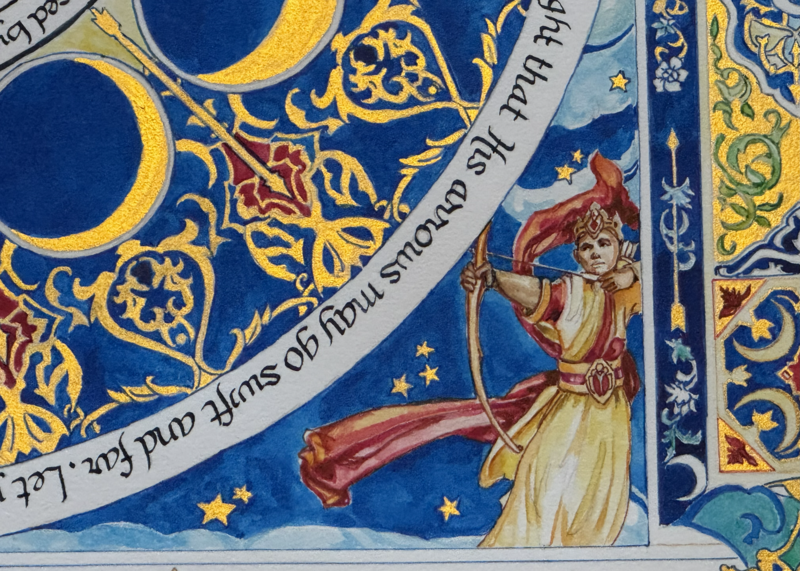 ced by
ght that His arrows may go swift and far. Let